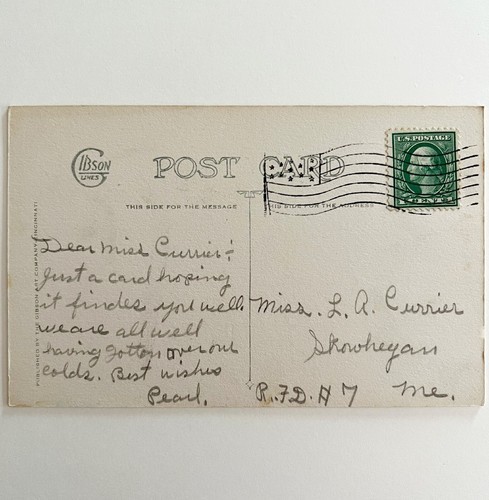 GIBSON
LINES
POST CARD
U.S. POSTAGE
CENT
THIS SIDE FOR THE MESSAGE
THIS SIDE FOR THE ADDRESS
PUBLISHED BY THE GIBSON ART COMPANY, CINCINNATI
Dear Miss Currier:-
Just a card hoping
it findes you well.
we are all well
having gotton over our
colds. Best wishes
Pearl.
Miss. L. A. Currier
Skowhegan
R.F.D. # 7 Me.